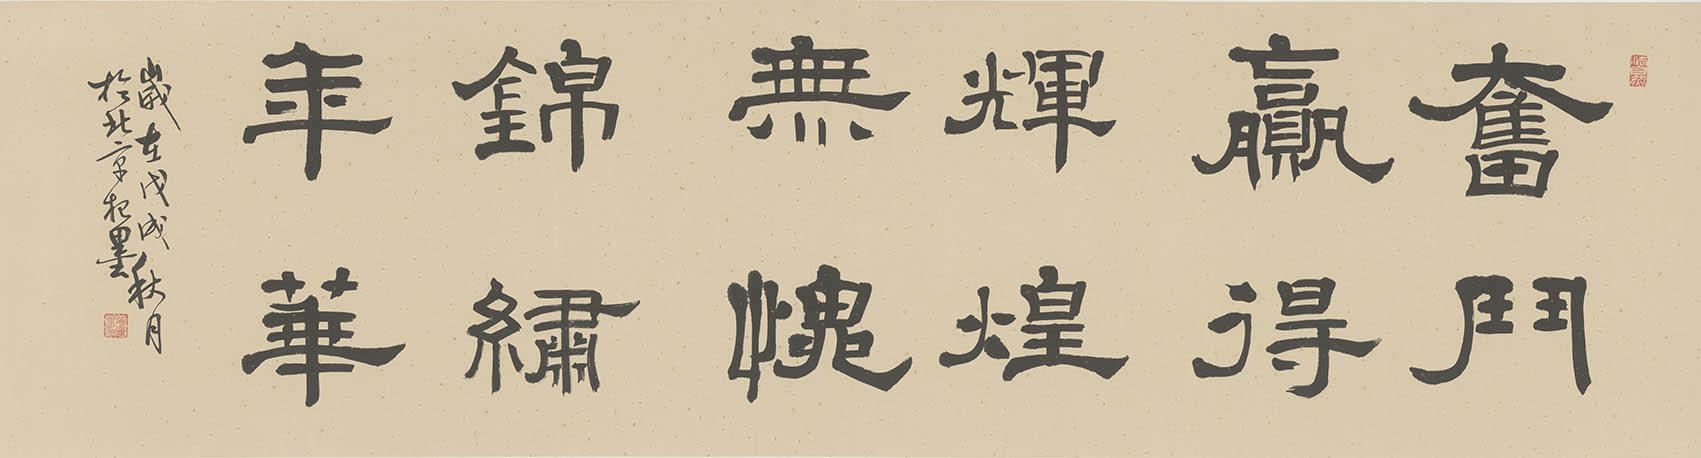 奮鬥
贏得
輝煌
無愧
錦繡
年華
歲在戊戌秋月
於北京 墨